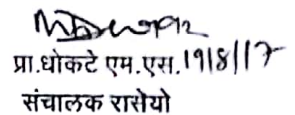 प्रा.धोकटे एम.एस. 19/8/17
संचालक रासेयो